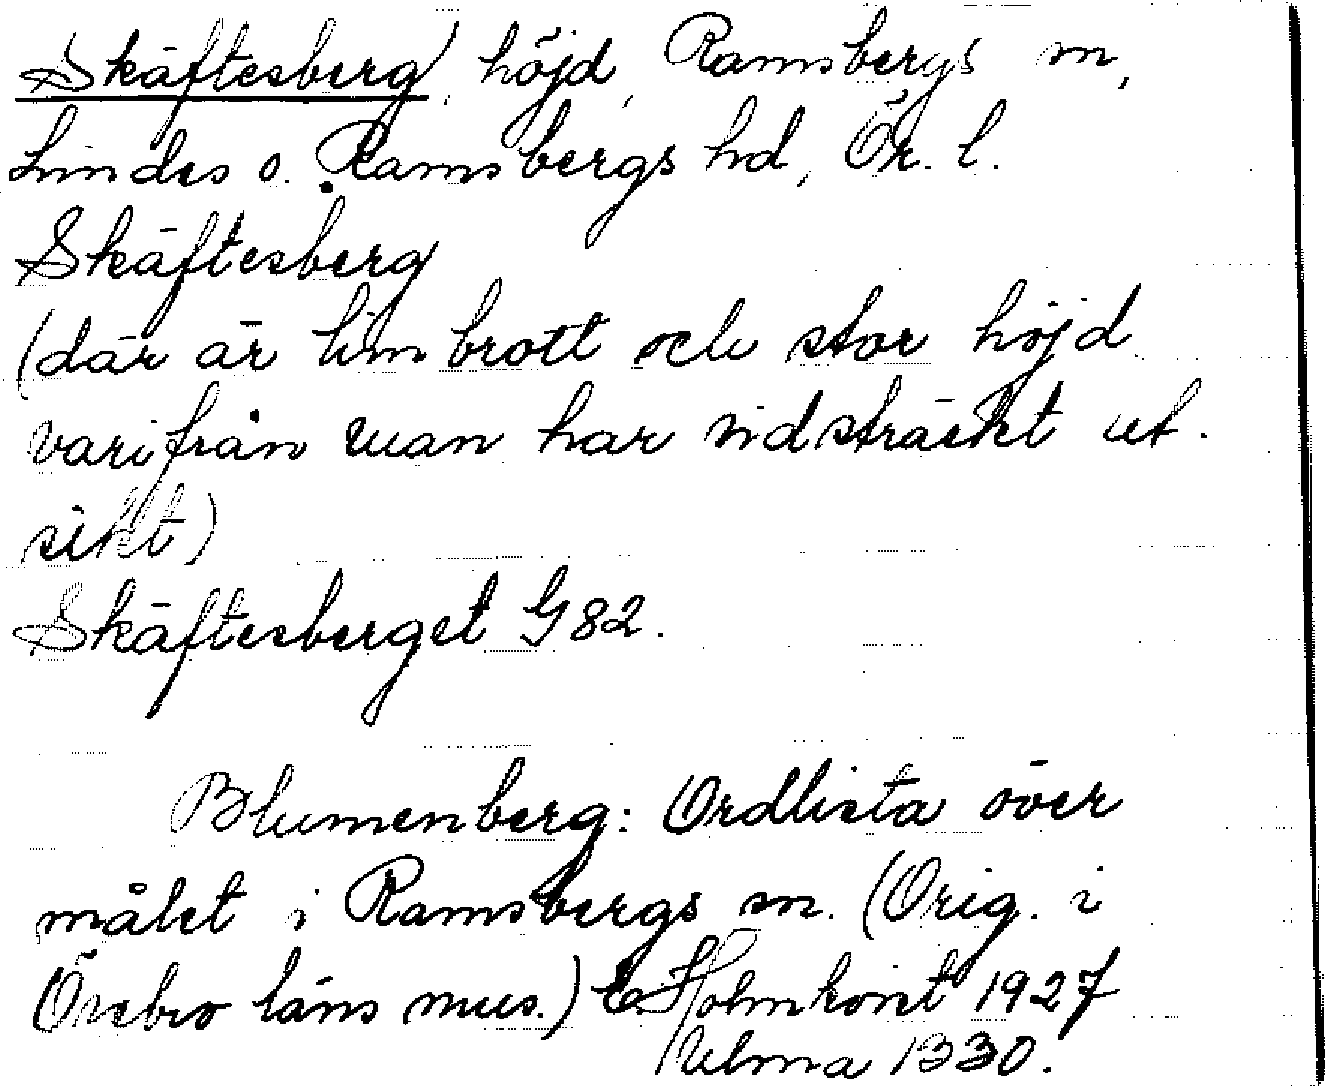 Skäftesberg, höjd, Ramsbergs sn,
Lindes o. Ramsbergs hd, Ör. l.
Skäftesberg
(där är limbrott och stor höjd
varifrån man har vidsträckt ut-
sikt)
Skäftesberget G 82.
Blumenberg: Ordlista över
målet i Ramsbergs sn. (Orig. i
Örebro läns mus.) E Holmkvist 1927
Ulma 1330.